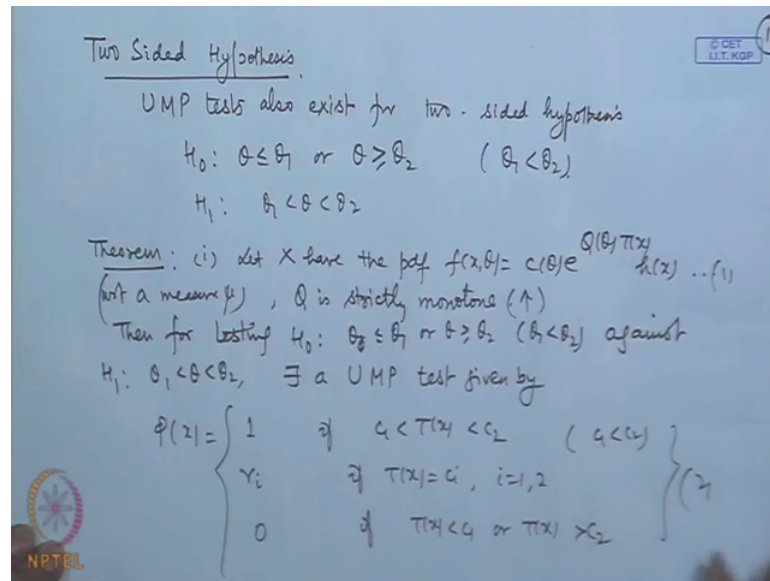 Two Sided Hypothesis.
© CET
I.I.T. KGP
UMP tests also exist for two-sided hypothesis
H₀: θ ≤ θ₁ or θ ≥ θ₂ (θ₁ < θ₂)
H₁: θ₁ < θ < θ₂
Theorem: (i) Let X have the pdf f(x,θ) = c(θ) e^{Q(θ) T(x)} h(x) ..(1)
(wrt a measure μ), Q is strictly monotone (↑)
Then for testing H₀: θ ≤ θ₁ or θ ≥ θ₂ (θ₁ < θ₂) against
H₁: θ₁ < θ < θ₂, ∃ a UMP test given by
φ(x) = { 1 if c₁ < T(x) < c₂ (c₁ < c₂)
γᵢ if T(x) = cᵢ, i=1,2
0 if T(x) < c₁ or T(x) > c₂ } (2
NPTEL